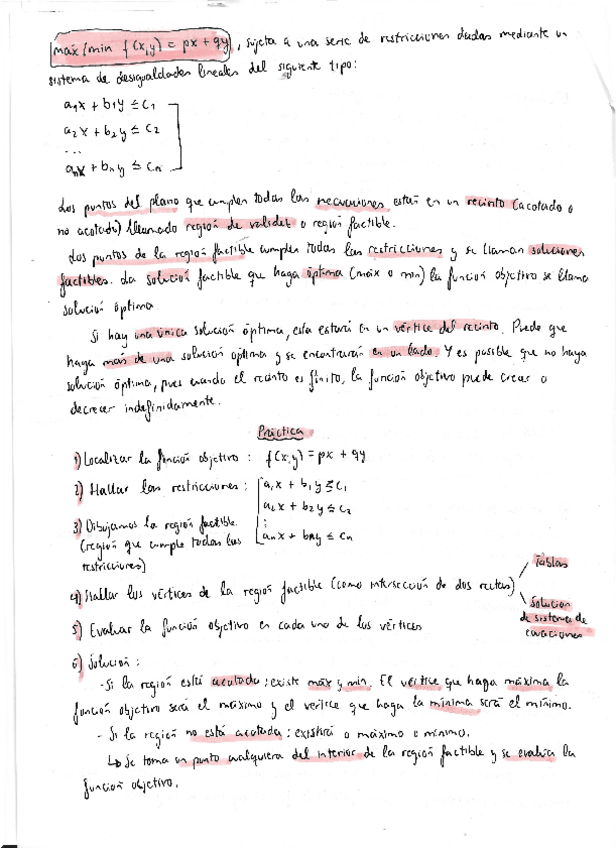 máx/min f(x,y) = px + qy, sujeta a una serie de restricciones dadas mediante un
sistema de desigualdades lineales del siguiente tipo:
a₁x + b₁y ≤ c₁
a₂x + b₂y ≤ c₂
...
aₙx + bₙy ≤ cₙ
Los puntos del plano que cumplen todas las inecuaciones están en un recinto (acotado o
no acotado) llamado región de validez o región factible.
Los puntos de la región factible cumplen todas las restricciones y se llaman soluciones
factibles. La solución factible que haga óptima (máx o min) la función objetivo se llama
solución óptima.
Si hay una única solución óptima, esta estará en un vértice del recinto. Puede que
haya más de una solución óptima y se encontrarán en un lado. Y es posible que no haya
solución óptima, pues cuando el recinto es finito, la función objetivo puede crecer o
decrecer indefinidamente.
Práctica
1) Localizar la función objetivo: f(x,y) = px + qy
2) Hallar las restricciones: a₁x + b₁y ≤ c₁
a₂x + b₂y ≤ c₂
3) Dibujamos la región factible
:
(región que cumple todas las aₙx + bₙy ≤ cₙ
restricciones)
Tablas
4) Hallar los vértices de la región factible (como intersección de dos rectas)
Solución
de sistema de
ecuaciones
5) Evaluar la función objetivo en cada uno de los vértices
6) Solución:
- Si la región está acotada: existe máx y min. El vértice que haga máxima la
función objetivo será el máximo y el vértice que haga la mínima será el mínimo.
- Si la región no está acotada: existirá o máximo o mínimo.
↳ Se toma un punto cualquiera del interior de la región factible y se evalúa la
función objetivo.